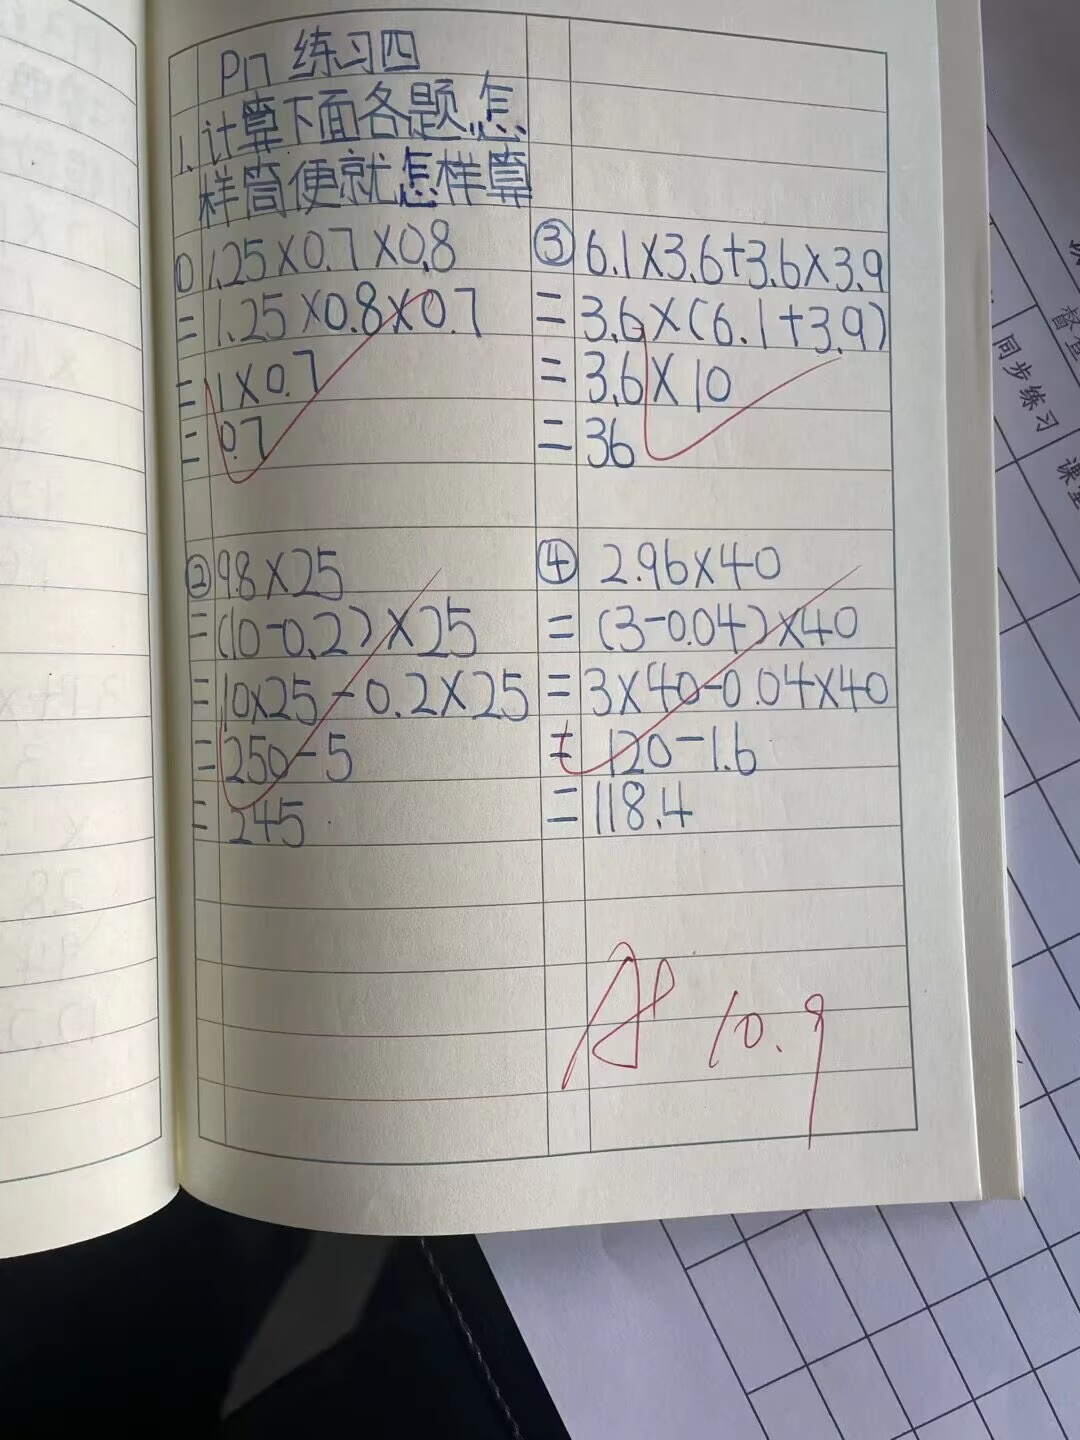 P17 练习四
1. 计算下面各题,怎
样简便就怎样算
① 1.25×0.7×0.8
= 1.25×0.8×0.7
= 1×0.7
= 0.7
② 9.8×25
= (10-0.2)×25
= 10×25-0.2×25
= 250-5
= 245
③ 6.1×3.6+3.6×3.9
= 3.6×(6.1+3.9)
= 3.6×10
= 36
④ 2.96×40
= (3-0.04)×40
= 3×40-0.04×40
= 120-1.6
= 118.4
10.9
同步练习